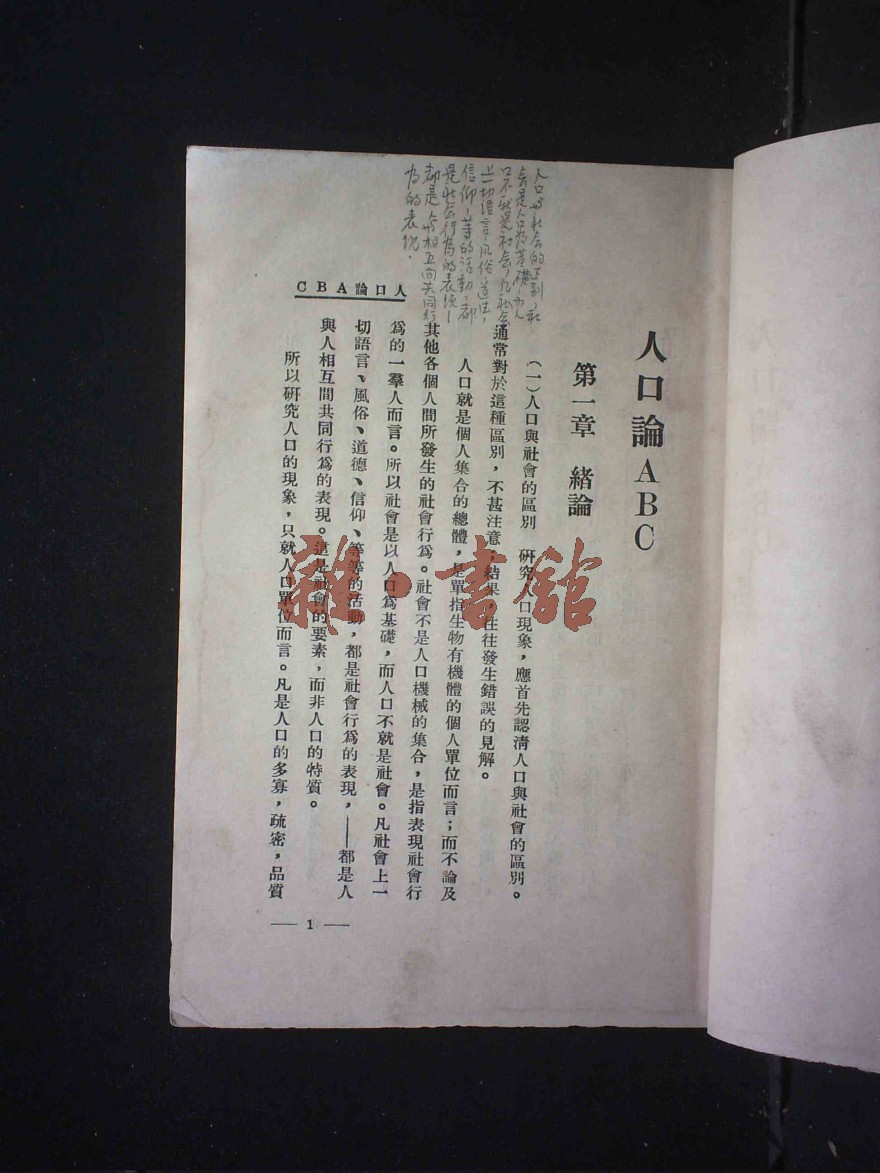 人口論ABC
第一章　緒論
（一）人口與社會的區別　研究人口現象，應首先認清人口與社會的區別。
通常對於這種區別，不甚注意；結果，往往發生錯誤的見解。
人口就是個人集合的總體，是單指生物有機體的個人單位而言；而不論及
其他各個人間所發生的社會行爲。社會不是人口機械的集合，是指表現社會行
爲的一羣人而言。所以社會是以人口爲基礎，而人口不就是社會。凡社會上一
切語言、風俗、道德、信仰、等等的活動，都是社會行爲的表現，——都是人
與人相互間共同行爲的表現。這是社會的要素，而非人口的特質。
所以研究人口的現象，只就人口單位而言。凡是人口的多寡，疏密，品質
人口論ABC
— 1 —
人口与社会的区别，社
会是人口为基礎，而人
口不就是社会，凡社会
上一切語言，风俗，道德，
信仰，等的活動，都
是社会行为的表现—
都是人与人相互间共同行
为的表现．
雜·書館